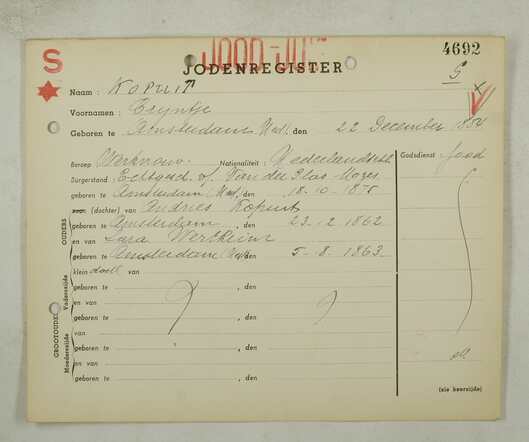 S JOOD-JUIF 4692
JODENREGISTER S
Naam : KOPUIT
Voornamen : Tryntje
Geboren te Amsterdam (Ned), den 22 December
Beroep Nationaliteit : Nederlandsche Godsdienst Jood
Burgerstand : Echtgen. v. Van der Glas Mozes
geboren te Amsterdam (Ned), den 18-10-1878
zoon (dochter) van Andries Kopuit
geboren te Amsterdam, den 23-12-1862
en van Sara Wertheim
geboren te Amsterdam (Ned), den 5-8-1863
klein van
geboren te ? , den ?
en van
geboren te , den
van
geboren te , den
en van
geboren te , den
OUDERS
GROOTOUDERS
Vaderszijde
Moederszijde
(zie keerzijde)